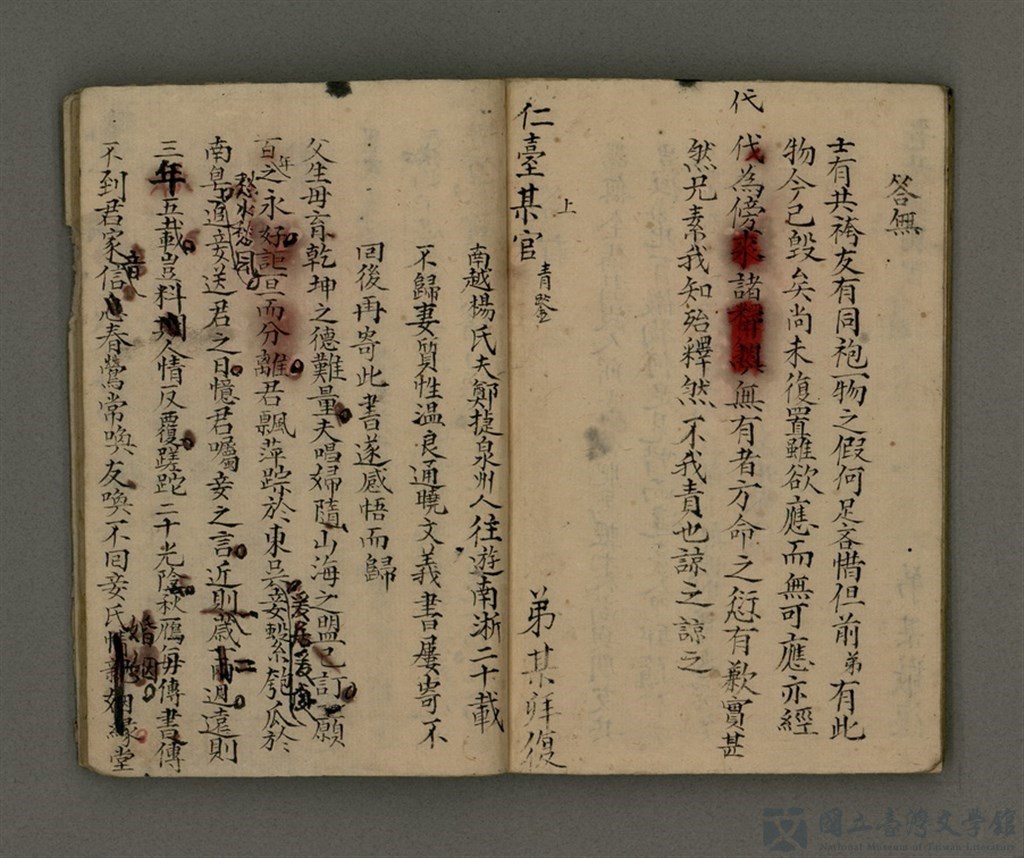 答無
士有共袴友有同袍一物之假何足吝惜但前弟有此
物今已毀矣尚未復置雖欲應而無可應亦經
代
伐為傍求諸 無有者方命之愆有歉實甚
然兄素我知殆釋然不我責也諒之諒之
仁臺某官
上
青鑒
弟某拜復
南越楊氏夫鄭捷泉州人往遊南浙二十載
不歸妻質性溫良通曉文義書屢寄不
回後再寄此書遂感悟而歸
父生母育乾坤之德難量夫唱婦隨山海之盟已訂願
年
百之永好詎一旦而分離君飄萍踪於東吳妾繫匏瓜於
南皐 妾送君之日憶君囑妾之言近則歲 兩週遠則
二
三年五載豈料 人情反覆蹉跎二十光陰秋鴈每傳書傳
音
不到君家信 春鶯常喚友喚不回妾氏 緣堂
婚姻
國立臺灣文學館
National Museum of Taiwan Literature